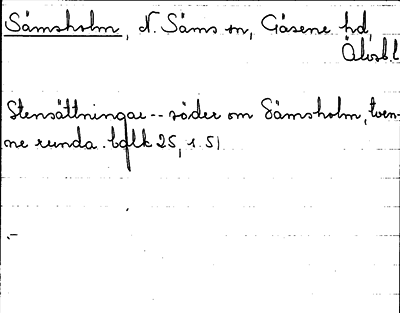 Sämsholm, N. Säms sn, Gäsene hd,
Älvsb.l
Stensättningar -- söder om Sämsholm, tven-
ne runda. bqlk 25, s. 51